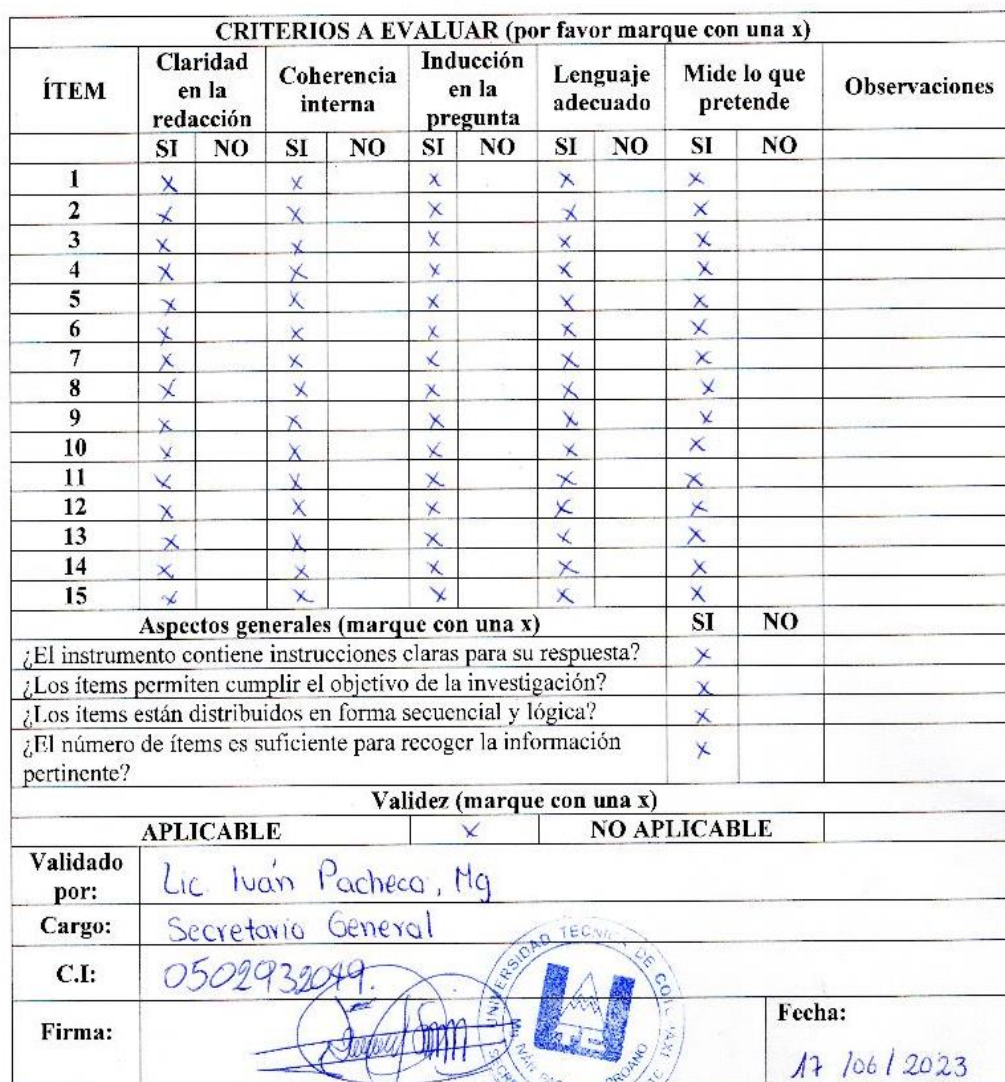 CRITERIOS A EVALUAR (por favor marque con una x)
ÍTEM Claridad en la redacción Coherencia interna Inducción en la pregunta Lenguaje adecuado Mide lo que pretende Observaciones
SI NO SI NO SI NO SI NO SI NO
1 x x x x x
2 x x x x x
3 x x x x x
4 x x x x x
5 x x x x x
6 x x x x x
7 x x x x x
8 x x x x x
9 x x x x x
10 x x x x x
11 x x x x x
12 x x x x x
13 x x x x x
14 x x x x x
15 x x x x x
Aspectos generales (marque con una x) SI NO
¿El instrumento contiene instrucciones claras para su respuesta? x
¿Los ítems permiten cumplir el objetivo de la investigación? x
¿Los ítems están distribuidos en forma secuencial y lógica? x
¿El número de ítems es suficiente para recoger la información
pertinente? x
Validez (marque con una x)
APLICABLE x NO APLICABLE
Validado por: Lic Iván Pacheco, Mg
Cargo: Secretario General
C.I: 0502932049.
UNIVERSIDAD TECNICA DE
Firma:
Fecha:
17/06/2023